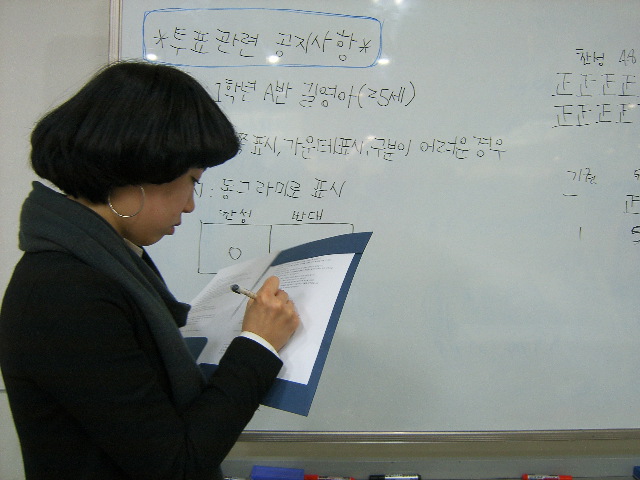 *투표관련 공지사항*
1학년 A반 길영아(25세)
표시, 가운데표시, 구분이 어려운 경우
: 동그라미로 표시
찬성 반대
○
찬성 48
正正正正
正正正正
기권
一 正
1 5